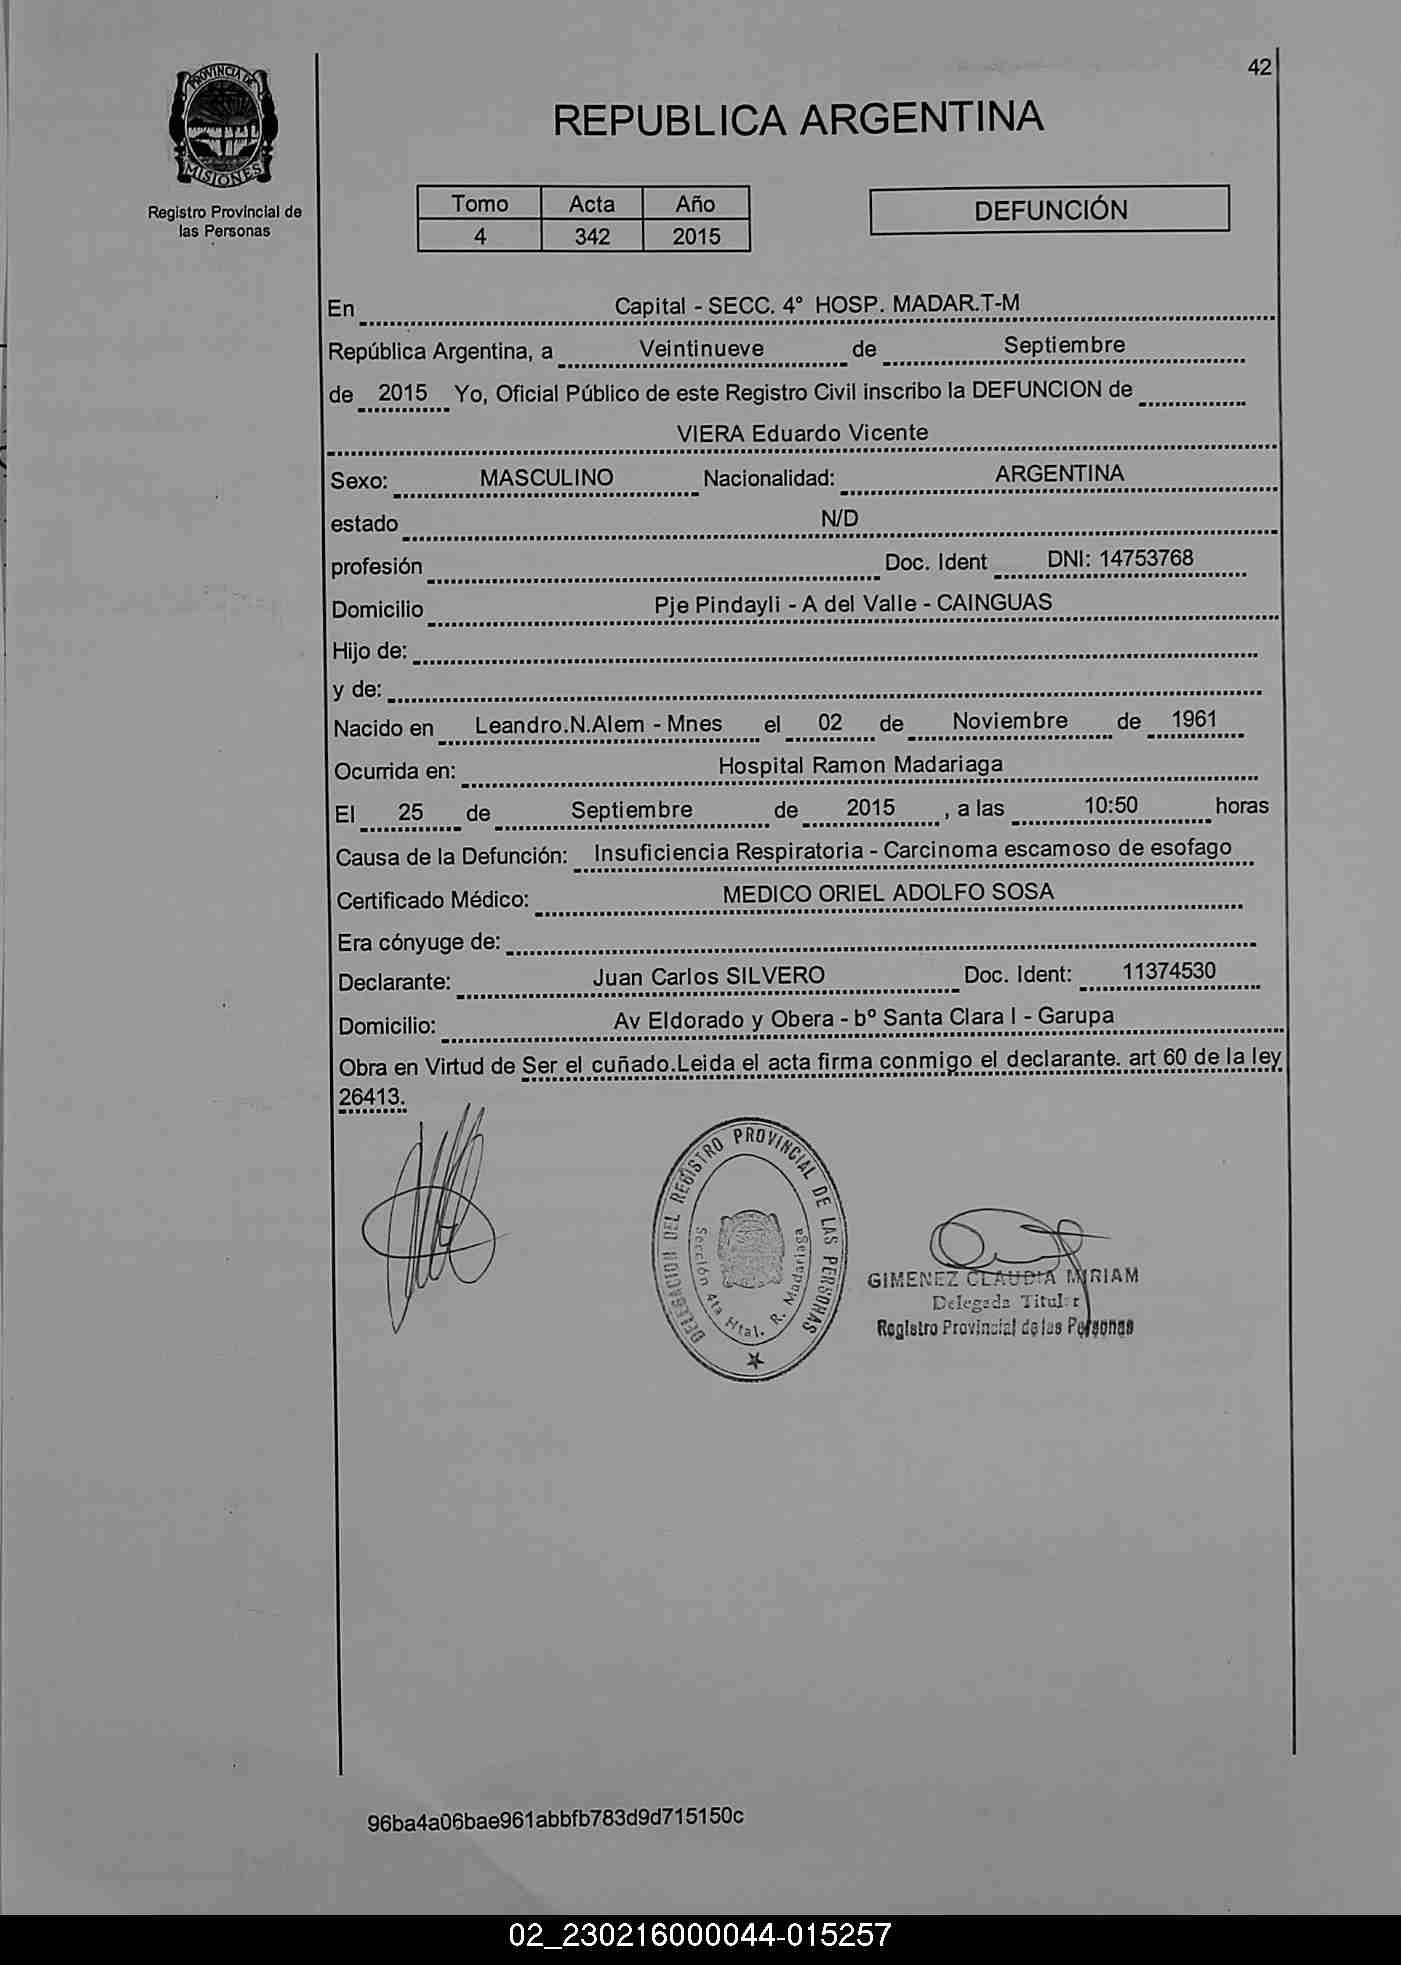 42
PROVINCIA DE
MISIONES
Registro Provincial de
las Personas
REPUBLICA ARGENTINA
Tomo Acta Año
4 342 2015
DEFUNCIÓN
En Capital - SECC. 4° HOSP. MADAR.T-M
República Argentina, a Veintinueve de Septiembre
de 2015 Yo, Oficial Público de este Registro Civil inscribo la DEFUNCION de
VIERA Eduardo Vicente
Sexo: MASCULINO Nacionalidad: ARGENTINA
estado N/D
profesión Doc. Ident DNI: 14753768
Domicilio Pje Pindayli - A del Valle - CAINGUAS
Hijo de:
y de:
Nacido en Leandro.N.Alem - Mnes el 02 de Noviembre de 1961
Ocurrida en: Hospital Ramon Madariaga
El 25 de Septiembre de 2015 , a las 10:50 horas
Causa de la Defunción: Insuficiencia Respiratoria - Carcinoma escamoso de esofago
Certificado Médico: MEDICO ORIEL ADOLFO SOSA
Era cónyuge de:
Declarante: Juan Carlos SILVERO Doc. Ident: 11374530
Domicilio: Av Eldorado y Obera - bº Santa Clara I - Garupa
Obra en Virtud de Ser el cuñado.Leida el acta firma conmigo el declarante. art 60 de la ley
26413.
DELEGACION DEL REGISTRO PROVINCIAL DE LAS PERSONAS
Sección 4ta Htal. R. Madariaga
GIMENEZ CLAUDIA MIRIAM
Delegada Titular
Registro Provincial de las Personas
96ba4a06bae961abbfb783d9d715150c
02_230216000044-015257